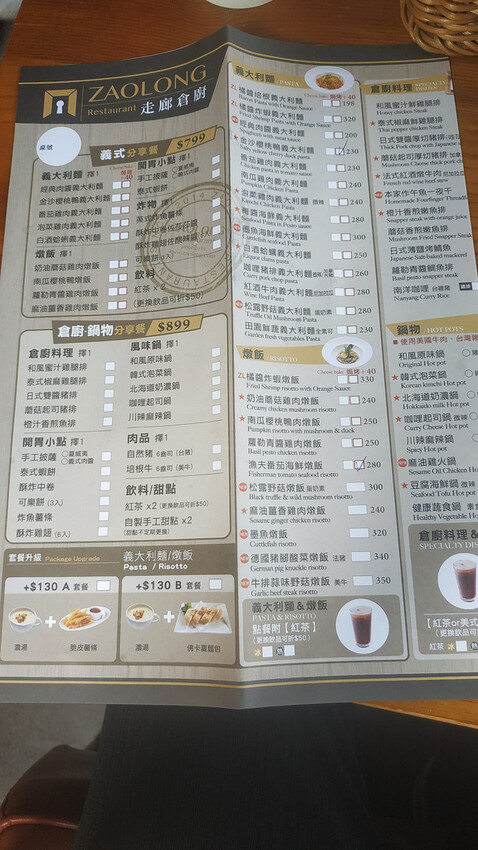 ZAOLONG
Restaurant 走廊倉廚
桌號
義式分享餐 $799
義大利麵 擇1
經典肉醬義大利麵
金沙櫻桃鴨義大利麵
番茄雞肉義大利麵
泡菜雞肉義大利麵
白酒蛤蜊義大利麵
燉飯 擇1
奶油蘑菇雞肉燉飯
南瓜櫻桃鴨燉飯
蘿勒青醬雞肉燉飯
麻油薑香雞肉燉飯
開胃小點 擇1
手工披薩
夏威夷
義式肉圓
泰式蝦餅
炸物 擇1
英式炸魚薯條
可樂餅
飲料
紅茶 x 3
(更換飲品可折$50)
倉廚・鍋物分享餐 $899
倉廚料理 擇1
和風蜜汁雞腿排
泰式椒麻雞腿排
日式雙醬豬排
蘑菇起司豬排
橙汁香煎魚排
開胃小點 擇1
手工披薩
夏威夷
義式肉圓
泰式蝦餅
酥炸中卷
可樂餅 (3入)
炸魚薯條
酥炸雞翅 (6入)
風味鍋 擇1
和風原味鍋
韓式泡菜鍋
北海道奶濃鍋
咖哩起司鍋
川辣麻辣鍋
肉品 擇1
自然豬 6盎司 (台豬)
培根牛 6盎司 (美牛)
飲料/甜點
紅茶 x2 (更換飲品可折$50)
自製手工甜點 x2
(甜點不定期更換)
套餐升級 Package Upgrade
義大利麵/燉飯
Pasta / Risotto
+$130 A 套餐
濃湯
脆皮薯條
+$130 B 套餐
濃湯
佛卡夏麵包
義大利麵 PASTA
Cheese bake 焗烤 + 40
橘醬培根義大利麵 198
Bacon Pasta with Orange Sauce
橘醬炸蝦義大利麵 320
Fried Shrimp Pasta with Orange Sauce
經典肉醬義大利麵 200
Spaghetti with meat sauce
金沙櫻桃鴨義大利麵 230
Salty yellow sherry duck pasta
番茄雞肉義大利麵 230
Chicken pasta in tomato sauce
南瓜雞肉義大利麵 240
Pumpkin Chicken Pasta
泡菜雞肉義大利麵 240
Kimchi Chicken Pasta
青醬海鮮義大利麵 280
Basil Seafood Pasta
墨魚海鮮義大利麵 300
Cuttlefish seafood Pasta
白酒蛤蠣義大利麵 250
Liquor clams pasta
咖哩豬排義大利麵 260
Curry pork chop pasta
紅酒牛肉義大利麵 280
Wine Beef Pasta
松露野菇義大利麵 280
Truffle Oil Mushroom Pasta
田園鮮蔬義大利麵 230
Garden fresh vegetables Pasta
燉飯 RISOTTO
Cheese bake 焗烤 + 40
橘醬炸蝦燉飯 330
Fried Shrimp risotto with Orange Sauce
奶油蘑菇雞肉燉飯 240
Creamy chicken mushroom risotto
南瓜櫻桃鴨肉燉飯 250
Pumpkin risotto with mushroom & duck
蘿勒青醬雞肉燉飯 250
Basil pesto chicken risotto
漁夫番茄海鮮燉飯 280
Fisherman tomato seafood risotto
松露野菇燉飯 蛋奶素 300
Black truffle & wild mushroom
麻油薑香雞肉燉飯 240
Sesame ginger chicken risotto
墨魚燉飯 320
Cuttlefish risotto
德國豬腳酸菜燉飯 法豬 340
German pig knuckle risotto
牛排蒜味野菇燉飯 美牛 350
Garlic beef steak risotto
義大利麵 & 燉飯
PASTA & RISOTTO
點餐附【紅茶】
(更換飲品可折$50)
冰 熱
倉廚料理
和風蜜汁鮮雞腿排
Honey chicken Steak
泰式椒麻雞腿排
Thai pepper chicken Steak
日式雙醬厚切豬排
Thick Pork chop with Japanese
蘑菇起司厚切豬排
Mushroom Cheese thick pork ch
法式紅酒燉牛肉
French red wine beef stew
本家作午魚一夜干
Homemade Fourfinger Thread
橙汁香煎嫩魚排
Snapper steak with orange juice
蘑菇香煎嫩魚排
Mushroom Fried Snapper Steak
日式薄鹽烤鯖魚
蘿勒青醬鯛魚排
Basil pesto snapper steak
南洋咖哩飯
Nanyang Curry Rice
鍋物 HOTPOTS
使用美國牛肉、台灣豬
和風原味鍋
Original Hot pot
韓式泡菜鍋
Korean kimchi Hot pot
北海道奶濃鍋
Hokkaido milk Hot pot
咖哩起司鍋 微辣
Curry Cheese Hot pot
川辣麻辣鍋
Spicy Hot pot
麻油雞火鍋
Sesame Oil Chicken Hot
豆腐海鮮鍋 微辣
Seafood Tofu Hot pot
健康蔬食鍋
Healthy Vegetable Ho
倉廚料理 &
SPECIALTY DIS
【紅茶or美式
(更換飲品可折$
紅茶 冰 熱